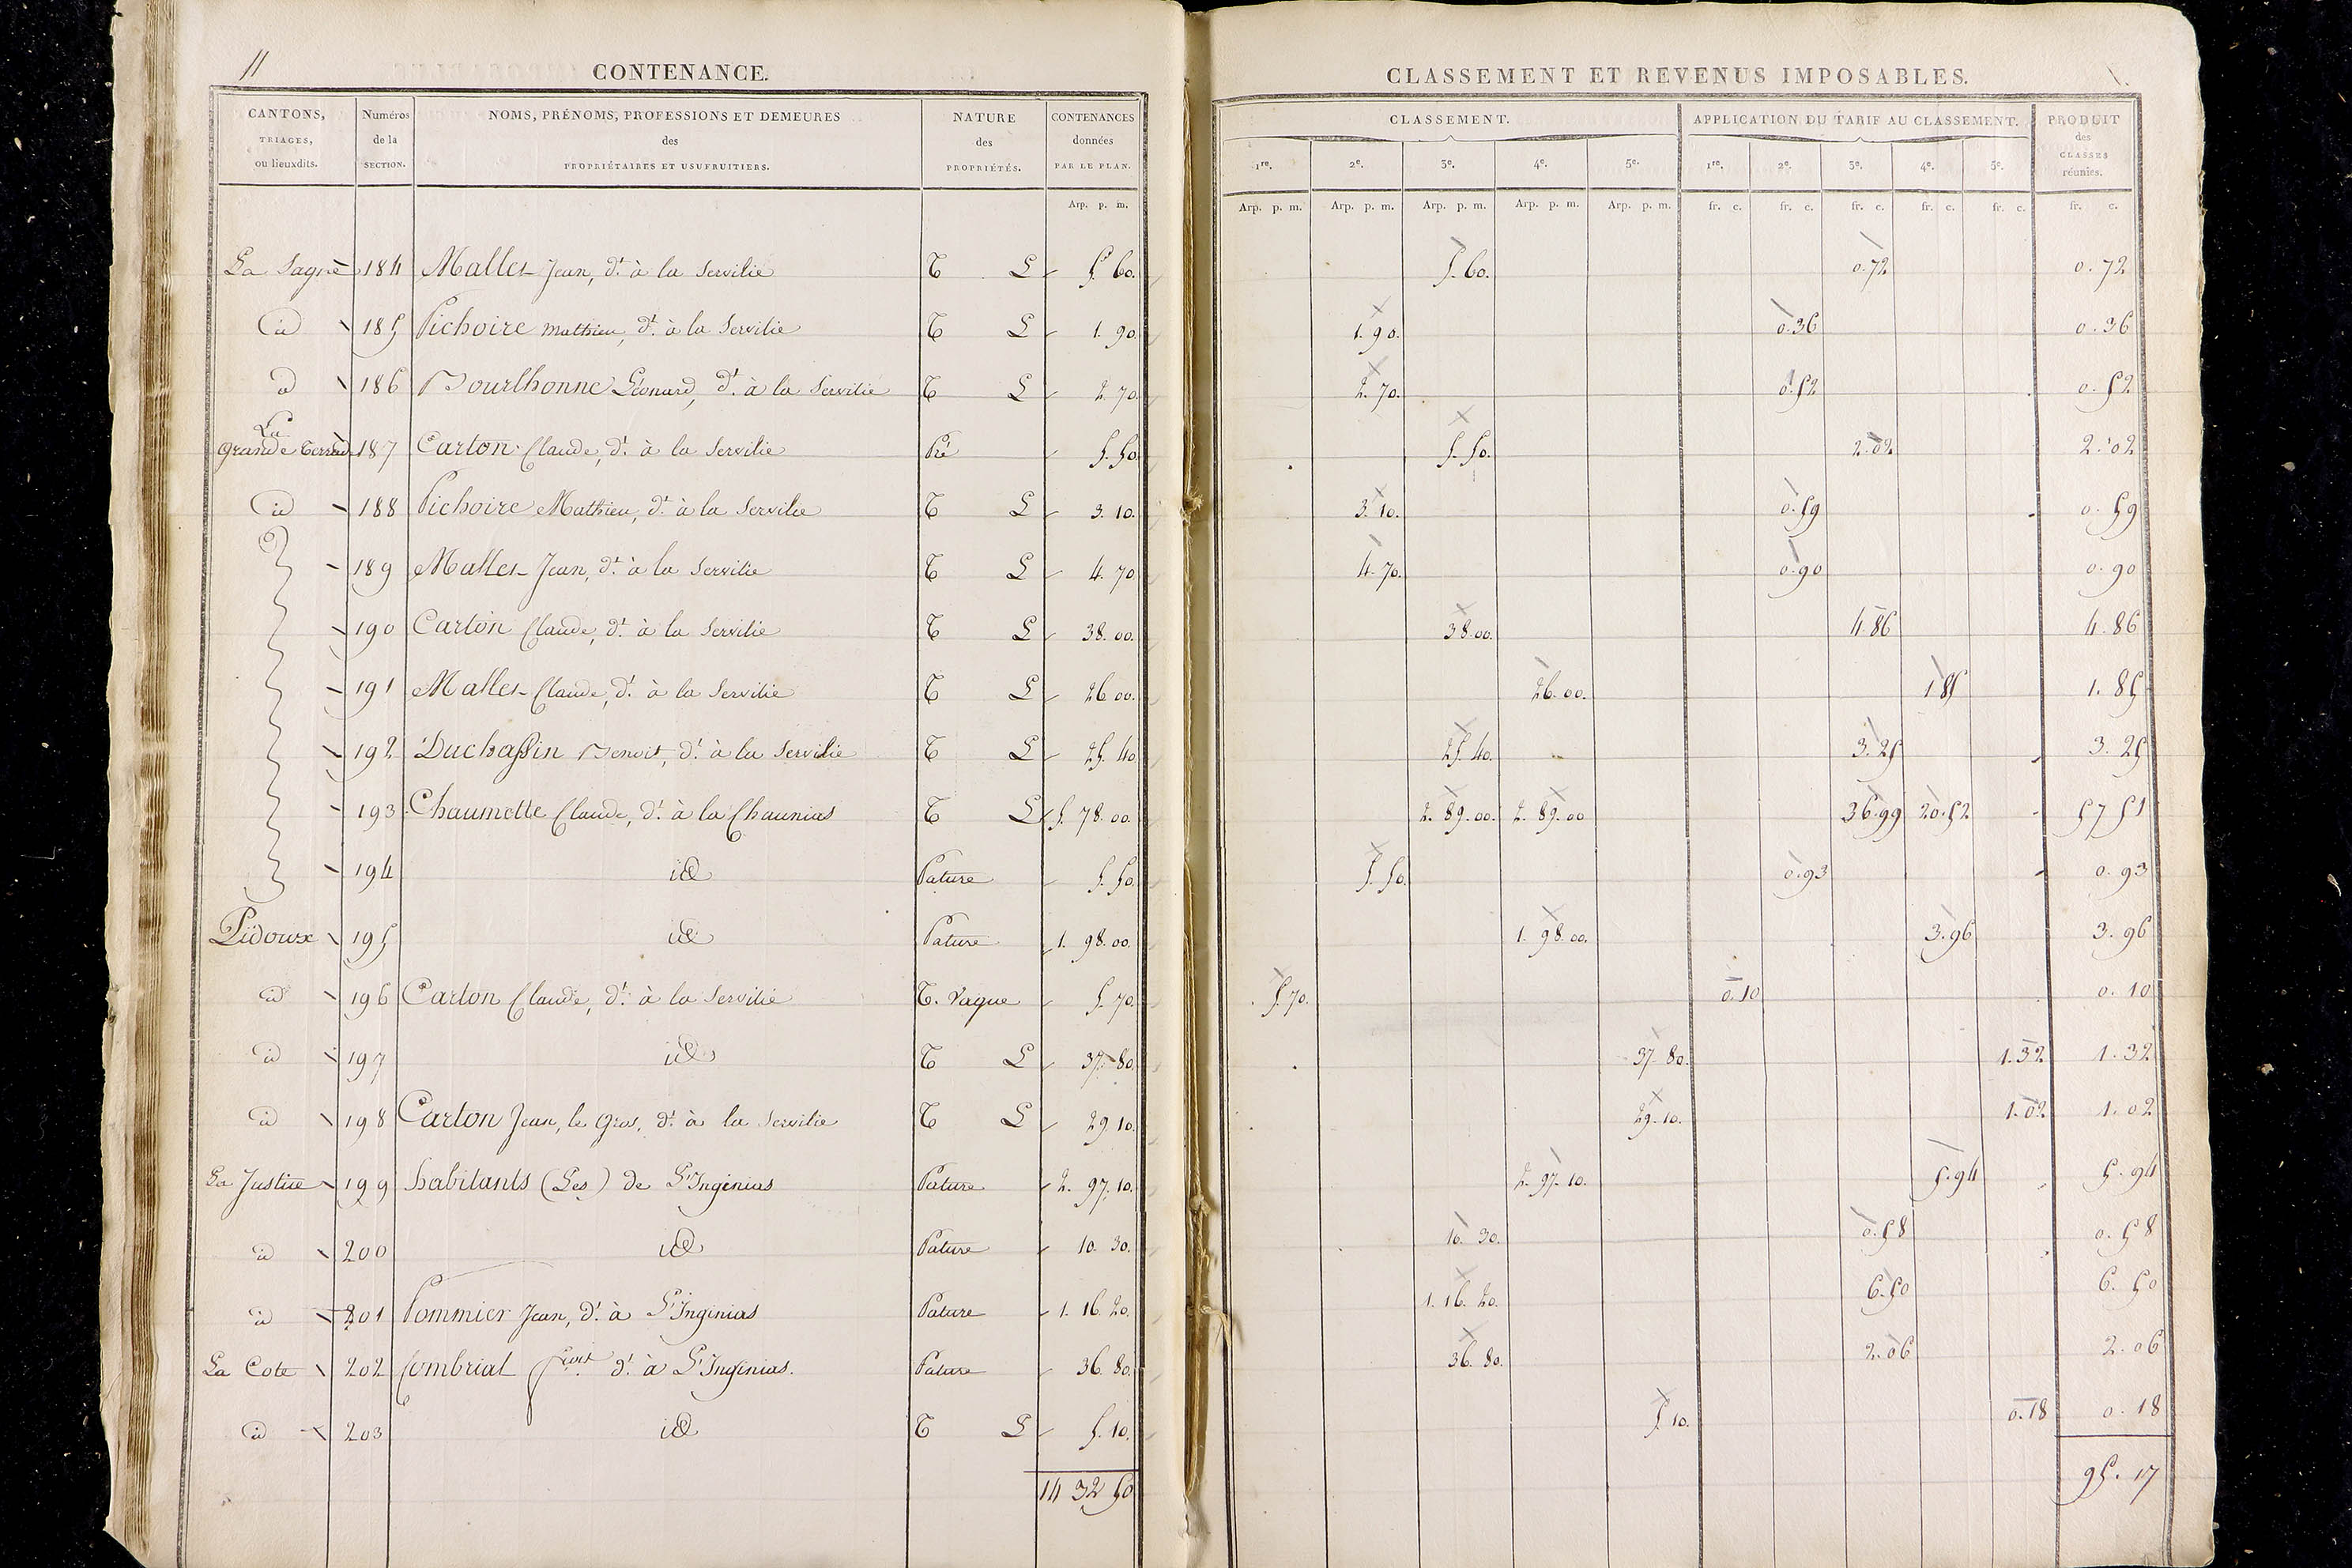 11
CONTENANCE.
CANTONS, TRIAGES, ou lieuxdits. | Numéros de la SECTION. | NOMS, PRÉNOMS, PROFESSIONS ET DEMEURES des PROPRIÉTAIRES ET USUFRUITIERS. | NATURE des PROPRIÉTÉS. | CONTENANCES données PAR LE PLAN.
Arp. p. m.
La Sagne 184 Mallet Jean, dt. à la Servilie T L 5. 60.
id 185 Pichoire Mathieu, dt. à la Servilie T L 1. 90.
id 186 Bourlhonne Léonard, dt. à la Servilie T L 2. 70.
La Grande 187 Carton Claude, dt. à la Servilie Pré 5. 50.
id 188 Pichoire Mathieu, dt. à la Servilie T L 3. 10.
189 Mallet Jean, dt. à la Servilie T L 4. 70
190 Carton Claude, dt. à la Servilie T L 38. 00.
191 Mallet Claude, dt. à la Servilie T L 26 00.
192 Duchassin Benoit, dt. à la Servilie T L 25. 40
193 Chaumette Claude, dt. à la Chaunias T L 5. 78. 00.
194 id Pature 5. 50
Pidoux 195 id Pature 1. 98. 00.
id 196 Carton Claude, dt. à la Servilie T. Vague 5. 70.
id 197 id T L 37. 80.
id 198 Carton Jean, le Gros, dt. à la Servilie T L 29. 10.
La Justice 199 habitants (Les) de St Ingénias Pature 2. 97. 10.
id 200 id Pature 10. 30.
id 201 Pommier Jean, dt. à St Ingénias Pature 1. 16. 20.
La Cote 202 Combrial dt. à St Ingénias. Pature 36. 80.
id 203 id T L 5. 10.
14 32 50
CLASSEMENT ET REVENUS IMPOSABLES.
CLASSEMENT. | APPLICATION DU TARIF AU CLASSEMENT. | PRODUIT des CLASSES réunies.
1re. 2e. 3e. 4e. 5e. 1re. 2e. 3e. 4e. 5e.
Arp. p. m. Arp. p. m. Arp. p. m. Arp. p. m. Arp. p. m. fr. c. fr. c. fr. c. fr. c. fr. c. fr. c.
5. 60. 0. 72 0. 72
1. 90. 0. 36 0. 36
2. 70. 0. 52 0. 52
5. 50. 2. 02 2. 02
3. 10. 0. 59 0. 59
4. 70. 0. 90 0. 90
38. 00. 4. 86 4. 86
26. 00. 1 85 1. 85
25. 40. 3. 25 3. 25
2. 89. 00. 2. 89. 00 36. 99 20. 52 57 51
5. 50. 0. 93 0. 93
1. 98. 00. 3. 96 3. 96
5. 70. 0. 10 0. 10
37. 80. 1. 32 1. 32
29. 10. 1. 02 1. 02
2. 97. 10. 5. 94 5. 94
10. 30. 0. 58 0. 58
1. 16. 20. 6. 50 6. 50
36. 80. 2. 06 2. 06
5. 10. 0. 18 0. 18
95. 17